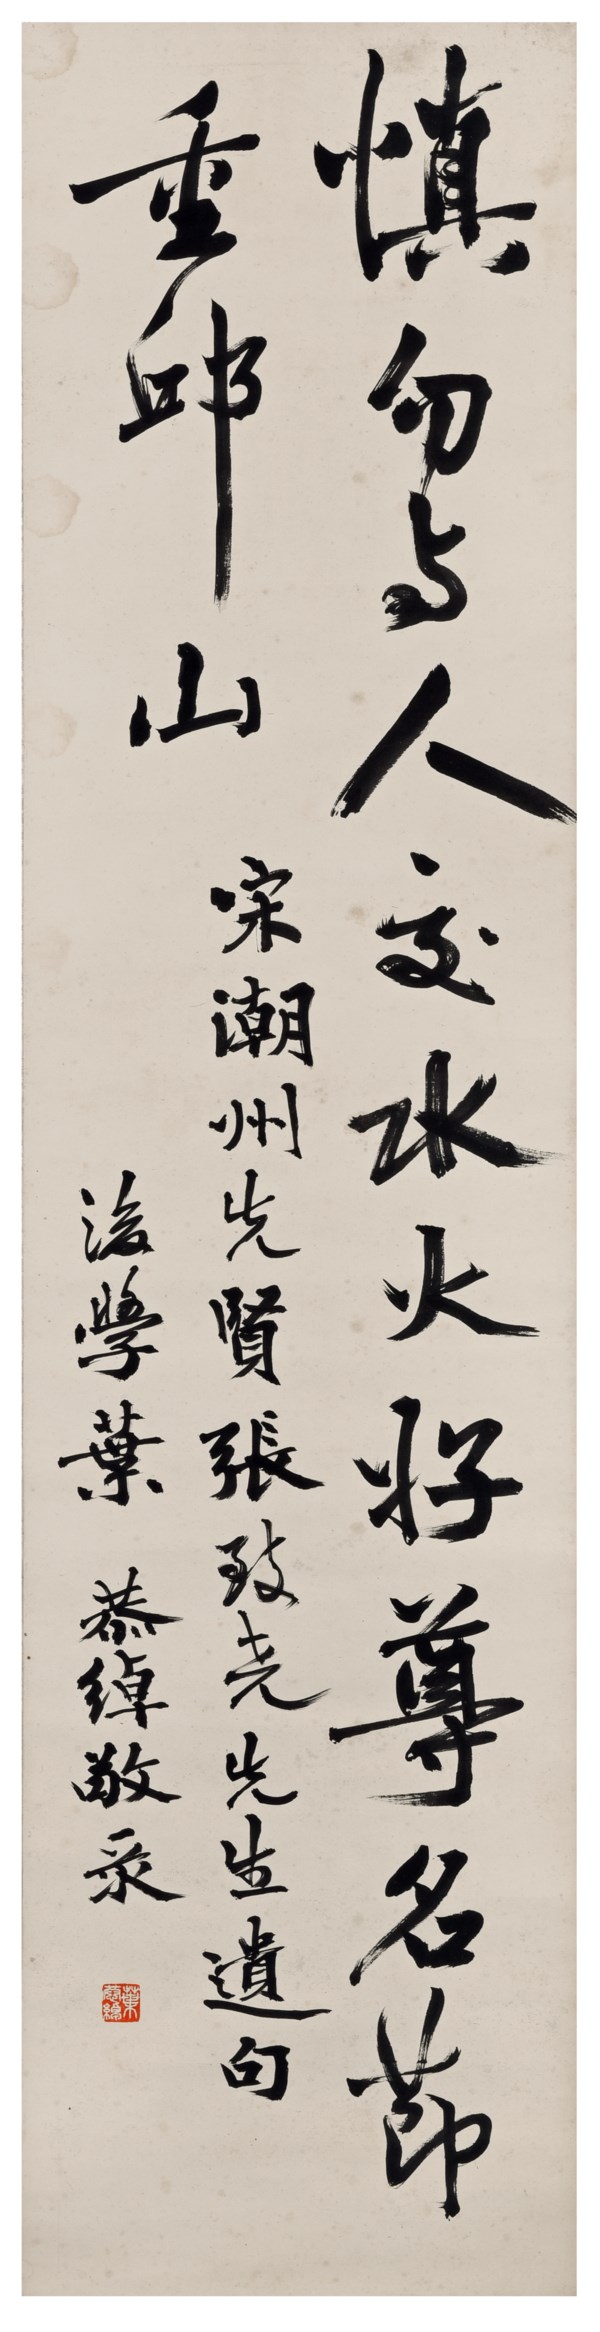 慎勿与人交水火好尊名節
重邱山
宋潮州先賢張致尧先生遺句
後學葉恭綽敬录
葉恭綽